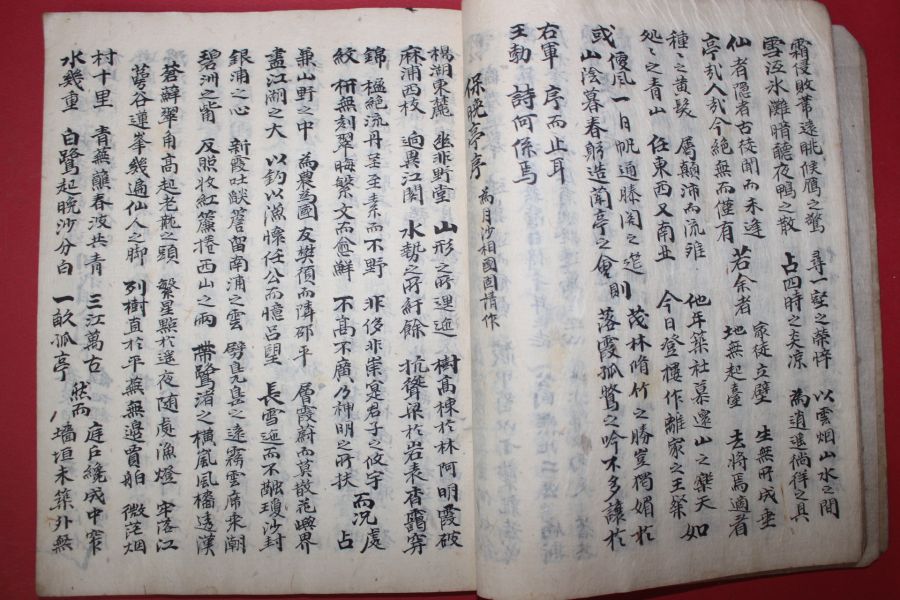 霜侵敗葦遠眺候鷹之驚 尋一壑之榮悴 以雲烟山水之間
雪沍氷灘暗聽夜鴨之散 占四時之炎凉 為逍遙倘徉之具
仙者隱者古徒聞而未逢 若余者 家徒立壁 生無所成垂
亭哉人哉今絶無而僅有 地無起臺 去將焉適着
種之黃髮 屬顚沛而流離 他年築社慕還山之樂天 如
処之青山 任東西又南北 今日登樓作離家之王粲
或便風一日帆通滕閣之筵 則茂林脩竹之勝豈獨媚於
山陰暮春躬造蘭亭之會 落霞孤鶩之吟不多讓於
右軍 序而止耳
王勃 詩何係焉
保晩亭序 為月沙相國固情作
楊湖東麓 坐非野堂 山形之所逶迤 樹高棟於林阿明霞破
麻浦西枝 逈異江閣 水勢之所紆餘 抗聳梁於岩表香靄穿
錦 楹絶流丹至至素而不野 非侈非崇寔君子之攸宇 而况處
紋 枅無刻翠晦繁文而愈鮮 不高不廣乃神明之所扶 占
兼山野之中 為農為圃友樊湏而隣邵平 層霞蔚而莫散花興界
盡江湖之大 以釣以漁懷任公而憶呂望 長雪迤而不融瓊沙封
銀浦之心 新霞吐燄蒼留南浦之雲 劈鳧息之遠霧雲席乘潮
碧洲之觜 反照收紅簾捲西山之雨 帶鷺渚之橫嵐風檣遠漢
蒼蘚翠角高起老龍之頭 繁星點於遙夜随處漁燈 牢落江
蕚谷蓮峯幾遍仙人之脚 列樹直於平蕪無邊賈舶 微茫烟
村十里 青蕪蘸春波共青 三江萬古 然而 庭戶纔成中窄
水幾重 白鷺起晩沙分白 一畝孤亭 八墻垣未築外無